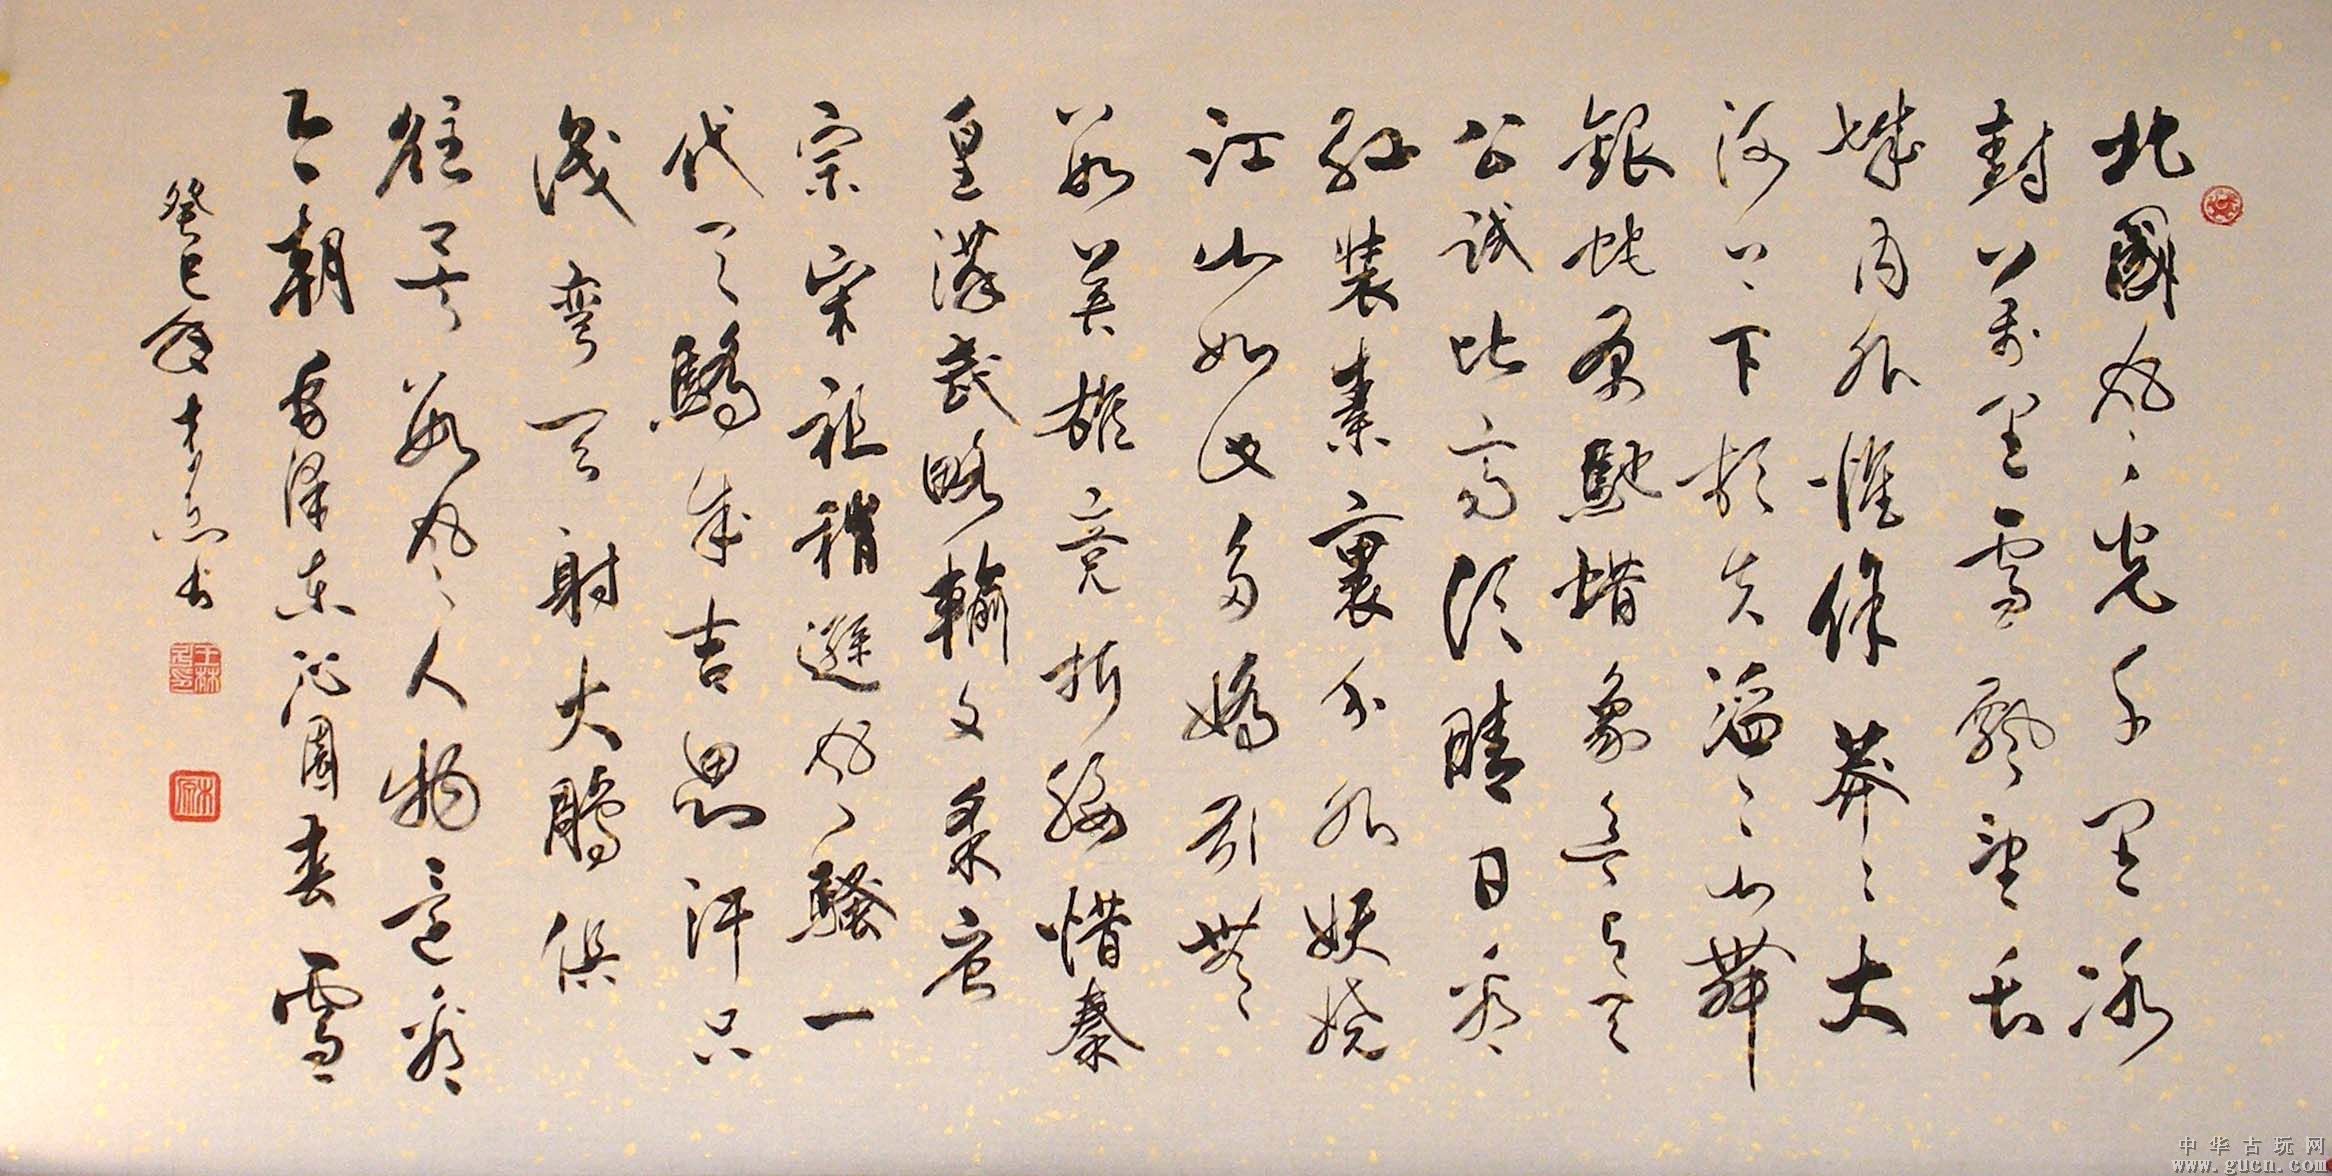 北國風光千里冰
封萬里雪飄望长
城内外惟餘莽〻大
河上下頓失滔〻山舞
銀蛇原馳蜡象欲與天
公試比高須晴日看
紅装素裹分外妖嬈
江山如此多嬌引無
數英雄竞折腰惜秦
皇漢武略輸文采唐
宗宋祖稍遜風騷一
代天驕成吉思汗只
識弯弓射大鵰俱
往矣數風流人物還看
今朝毛澤東沁園春雪
癸巳年书
中华古玩网
www.gucn.com